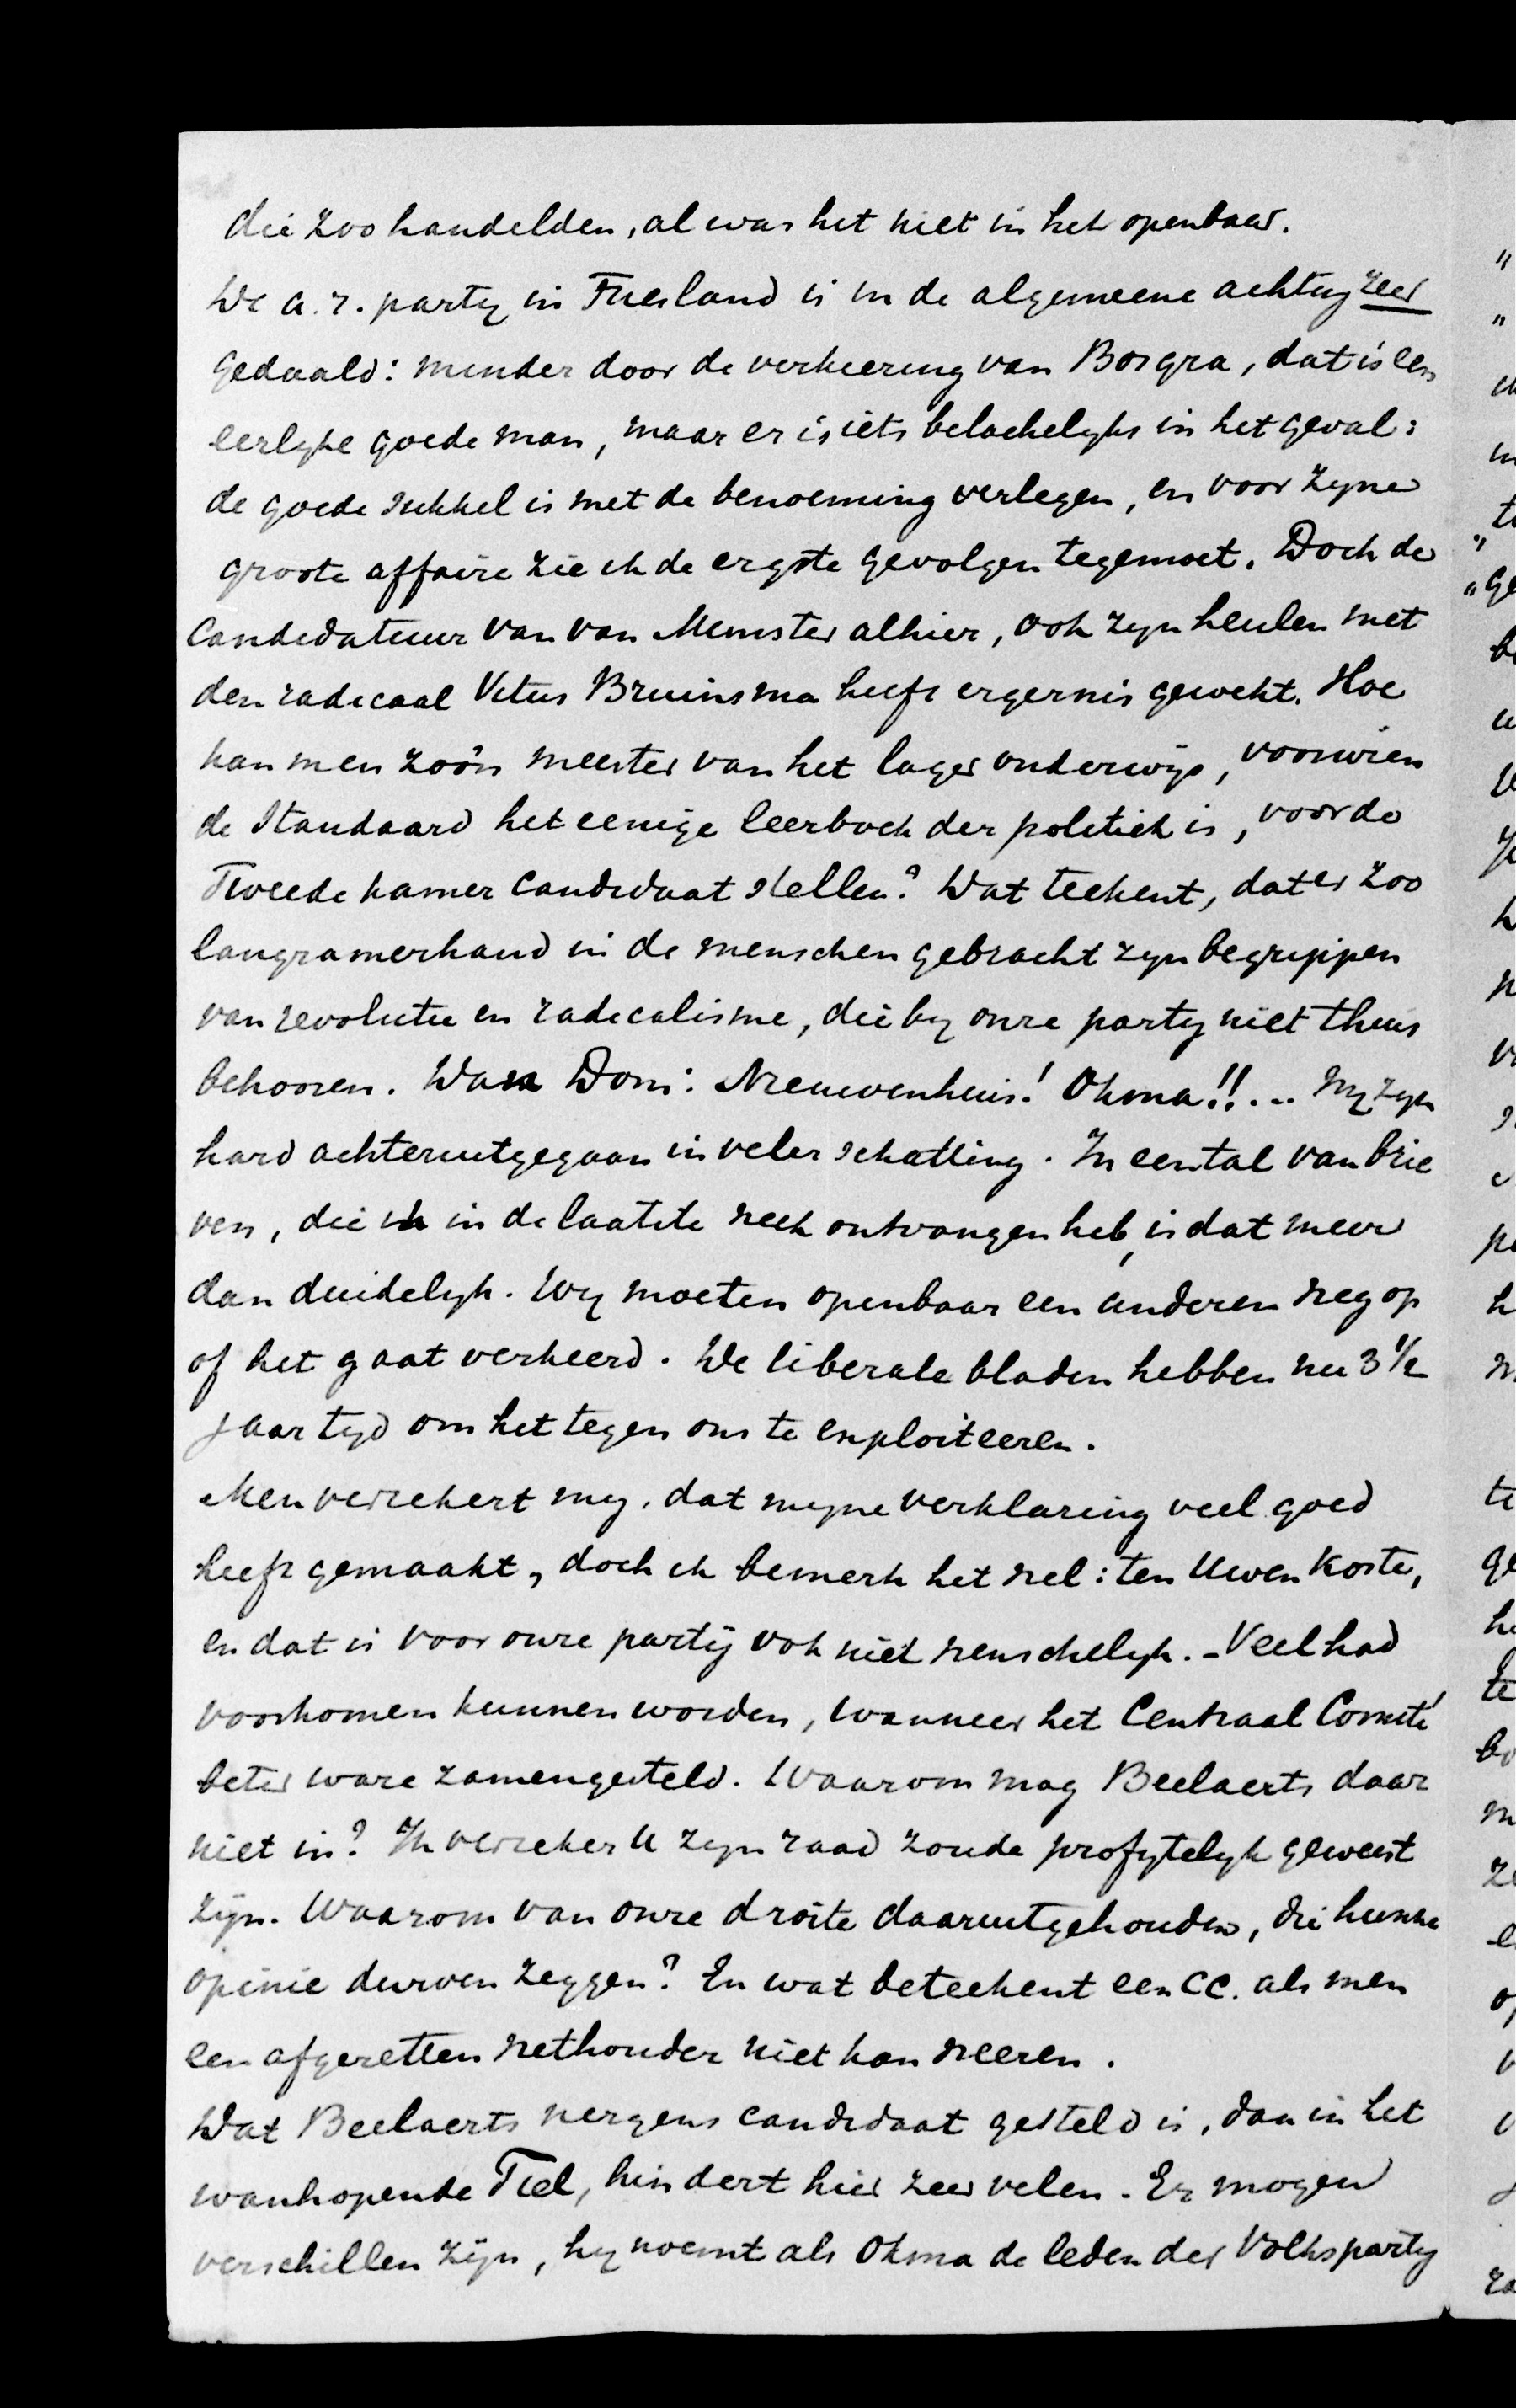 die zoo handelden, al was het niet in het openbaar.
De a.r. party in Friesland is in de algemeene achting zeer
gedaald: minder door de verkiezing van Bosgra, dat is een
eerlyke goede man, maar er is iets belachelyks in het geval:
de goede sukkel is met de benoeming verlegen, en voor zyne
groote affaire zie ik de ergste gevolgen tegemoet. Doch de
Candidatuur van van Munster alhier, ook zyn heulen met
den radicaal Vitus Bruinsma heeft ergernis gewekt. Hoe
kan men zoo'n meester van het lager onderwijs, voor wien
de Standaard het eenige leerboek der politiek is, voor de
Tweede kamer candidaat stellen? Dat teekent, dat er zoo
langzamerhand in de menschen gebracht zyn begrippen
van revolutie en radicalisme, die by onze party niet thuis
behooren. Dan Dom: Nieuwenhuis! Okma!!... Wy zyn
hard achteruitgegaan in veler schatting. In een tal van brie
ven, die ik in de laatste week ontvangen heb, is dat meer
dan duidelyk. Wy moeten openbaar een anderen weg op
of het gaat verkeerd. De liberale bladen hebben nu 3½
jaar tyd om het tegen ons te exploiteeren.
Men verzekert my, dat myne verklaring veel goed
heeft gemaakt, doch ik bemerk het wel: ten Uwen koste,
en dat is voor onze partij ook niet wenschelyk. - Veel had
voorkomen kunnen worden, wanneer het Centraal Comité
beter ware zamengesteld. Waarom mag Beelaerts daar
niet in? Ik verzeker U zyn raad zoude profytelyk geweest
zijn. Waarom van onze droite daaruitgehouden, die hunne
opinie durven zeggen? En wat beteekent een CC. als men
een afgezetten wethouder niet kan weeren.
Dat Beelaerts nergens candidaat gesteld is, dan in het
wanhopende Tiel, hindert hier zeer velen. Er mogen
verschillen zijn, hy noemt als Okma de leden der Volksparty